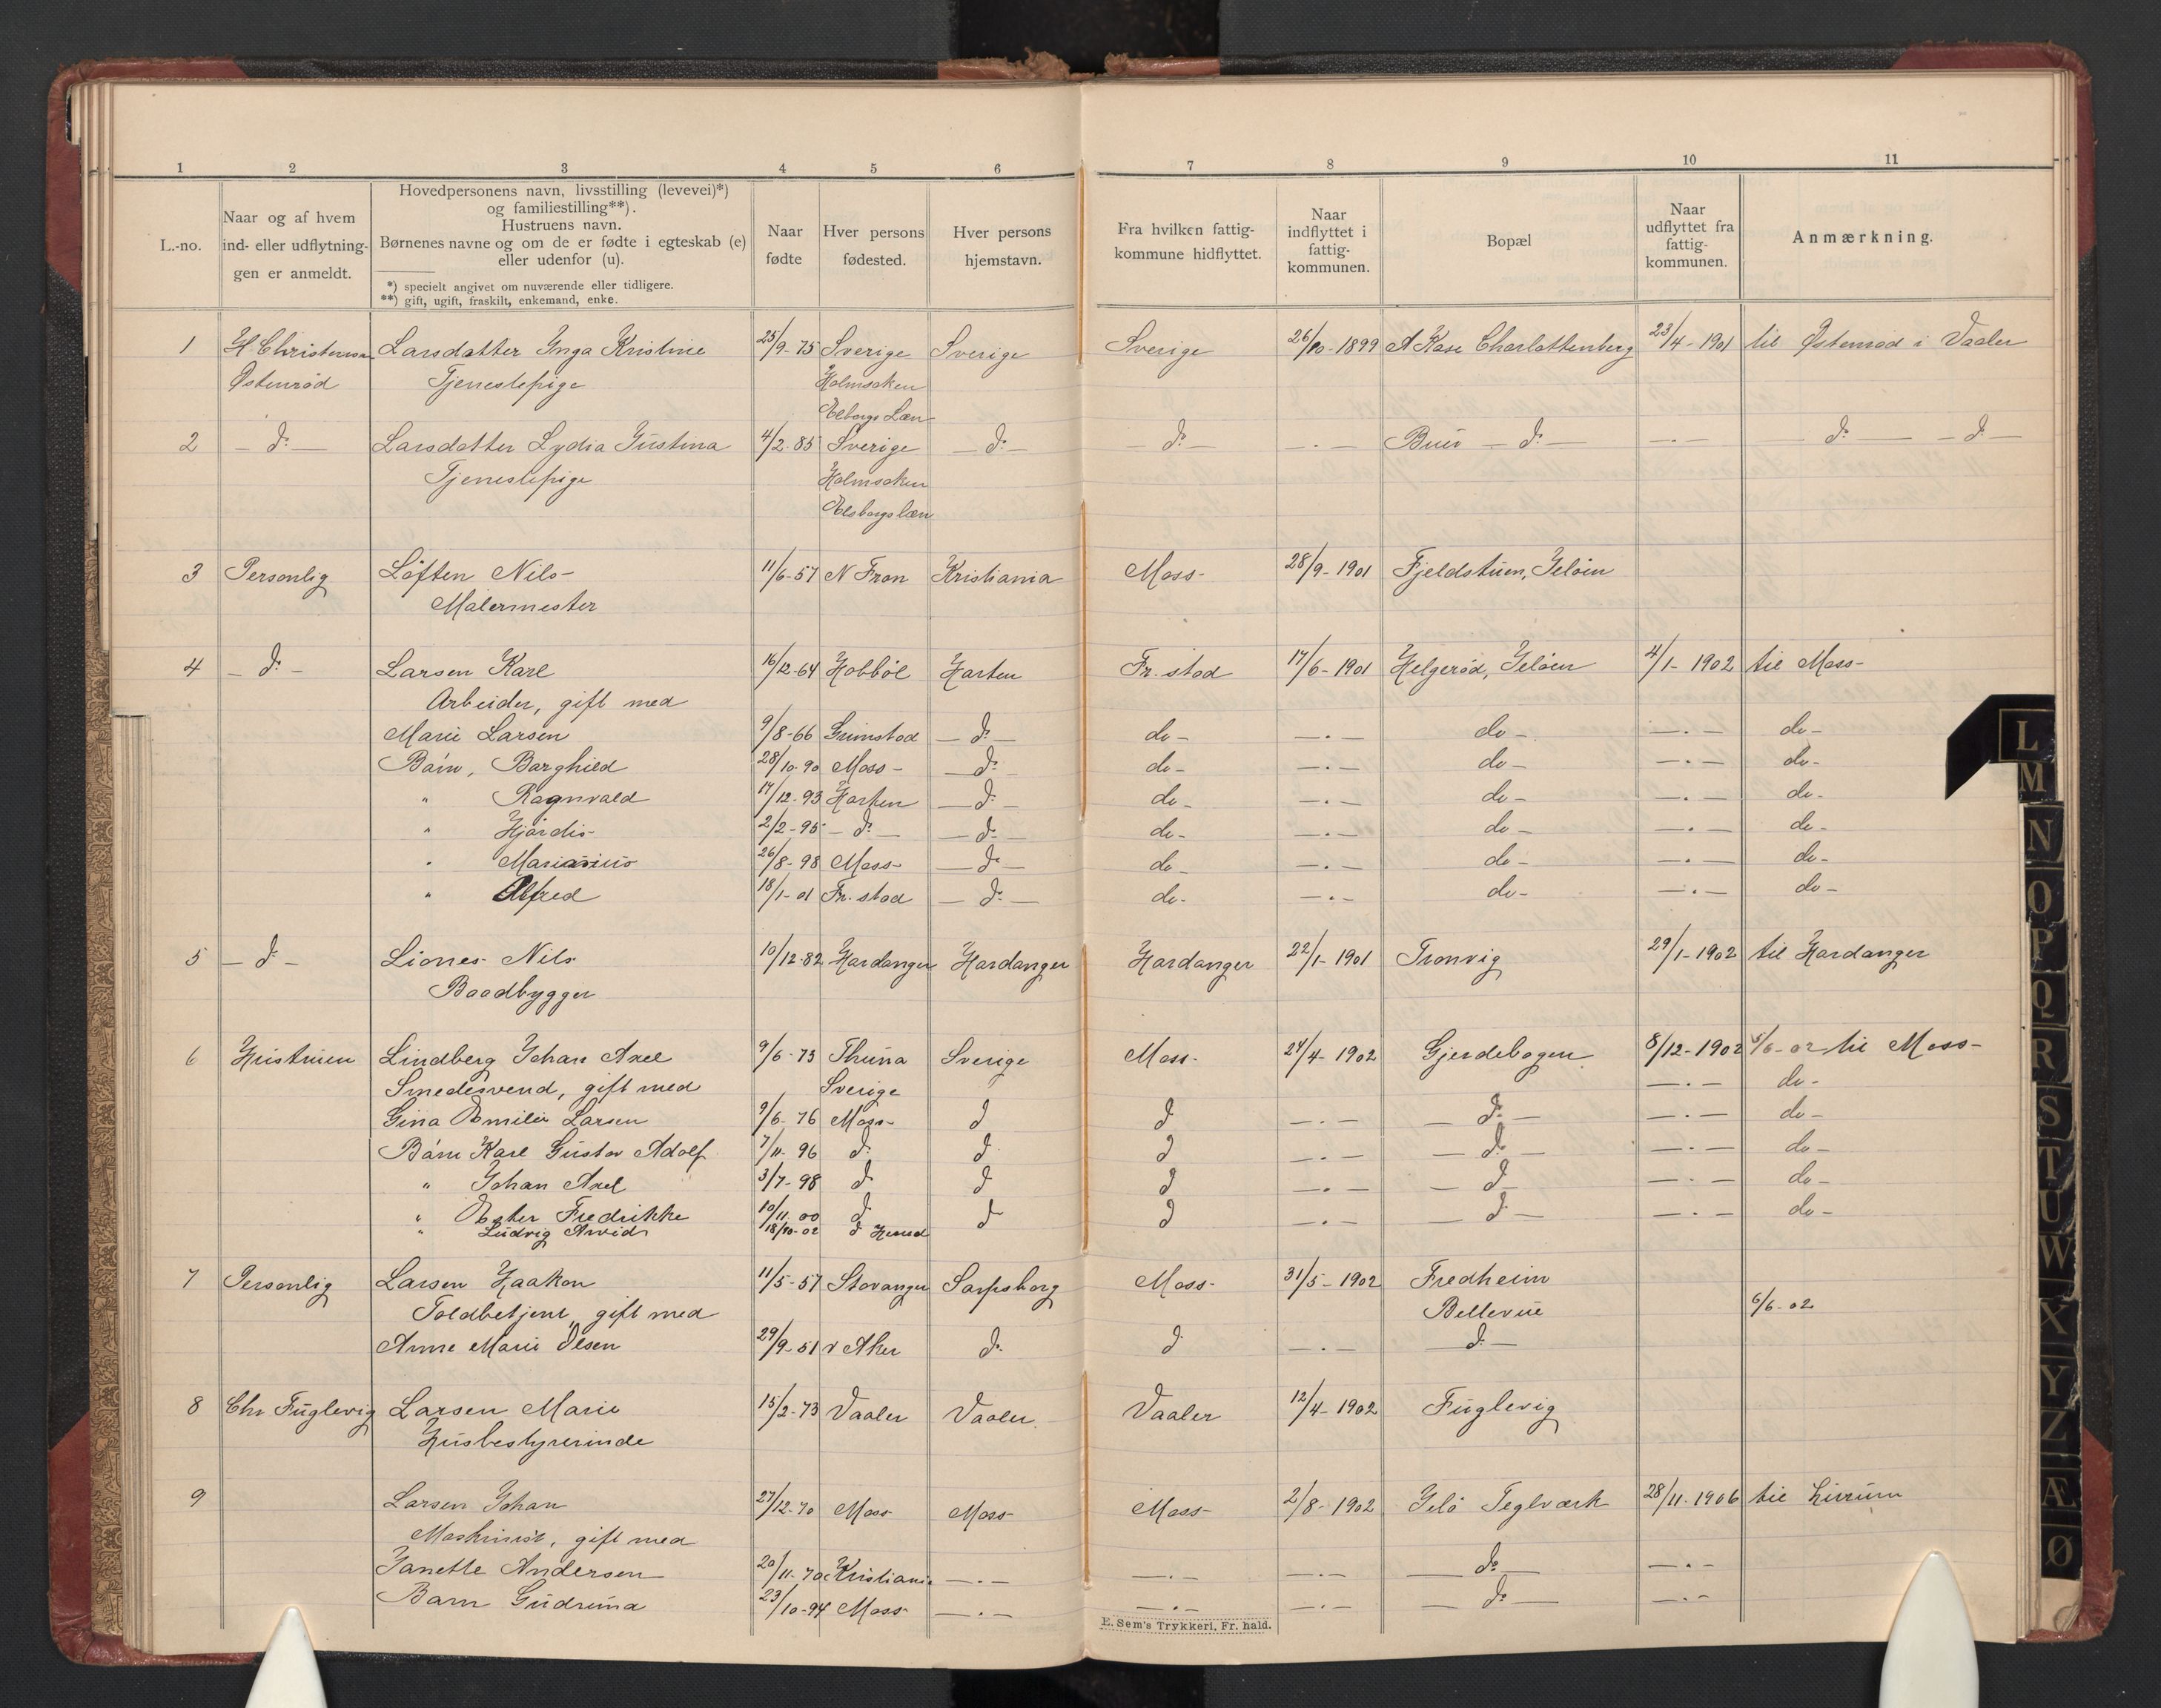 1 2 3 4 5 6 7 8 9 10 11
L.-no.
Naar og af hvem
ind- eller udflytnin-
gen er anmeldt.
Hovedpersonens navn, livsstilling (levevei)*)
og familiestilling**).
Hustruens navn.
Børnenes navne og om de er fødte i egteskab (e)
eller udenfor (u).
*) specielt angivet om nuværende eller tidligere.
**) gift, ugift, fraskilt, enkemand, enke.
Naar
fødte
Hver persons
fødested.
Hver persons
hjemstavn.
Fra hvilken fattig-
kommune hidflyttet.
Naar
indflyttet i
fattig-
kommunen.
Bopæl
Naar
udflyttet fra
fattig-
kommunen.
Anmærkning.
1 H Christensen Larsdatter Inga Kristine 25/9-75 Sverige Sverige Sverige 26/10-1899 A Kase Charlottenberg 23/4-1901 til Østenrød i Vaaler
Østenrød Tjenestepige Holmsaken
Elborgs Læn
2 - do - Larsdatter Lydia Justina 4/2-85 Sverige - do - do - - . - Buer - do - - . - - do - - do -
Tjenestepige Holmsaken
Elsborgs læn
3 Personlig Löften Nils 11/6-57 N Fron Kristiania Moss- 28/9-1901 Fjeldstuen, Jelöen
Malermester
4 - do - Larsen Karl 16/12-64 Hobböl Horten Fr.stad 17/6-1901 Helgeröd, Jelöen 4/1-1902 til Moss-
Arbeider, gift med
Marie Larsen 9/8-66 Grimstad - do - do - - . - do - - . - do -
Barn, Borghild 28/10-90 Moss- - do - do - - . - do - - . - do -
" Ragnvald 17/12-93 Horten - do - do - - . - do - - . - do -
" Hjördis 2/2-95 - do - - do - do - - . - do - - . - do -
" Mariasius 26/8-98 Moss- - do - do - - . - do - - . - do -
" Alfred 18/1-01 Fr.stad - do - do - - . - do - - . - do -
5 - do - Liones Nils 10/12-82 Hardanger Hardanger Hardanger 22/1-1901 Tronvig 29/1-1902 til Hardanger
Baadbygger
6 Hustruen Lindberg Johan Axel 9/6-73 Thuna Sverige Moss- 24/4-1902 Gjerdebogen 8/12-1902 5/6-02 til Moss-
Smedesvend, gift med Sverige - . - do -
Gina Emilie Larsen 9/6-76 Moss- do do - . - - do - - . - do -
Barn Karl Gustav Adolf 7/11-96 do do do - . - - do - - . - do -
" Johan Axel 3/7-98 do do do - . - - do - - . - do -
" Ester Fredrikke 10/11-00 do do do - . - - do - - . - do -
" Ludvig Arvid 18/10-02 do
7 Personlig Larsen Haakon 11/5-57 Stavanger Sarpsborg Moss- 31/5-1902 Fredheim
Toldbetjent, gift med Bellevue 6/6-02
Anne Marie Olsen 29/9-51 v Aker do do - . - - do -
8 Chr Fuglevig Larsen Marie 15/2-73 Vaaler Vaaler Vaaler 12/4-1902 Fuglevig
Husbestyrerinde
9 Larsen Johan 27/12-70 Moss Moss- Moss- 2/8-1902 Jelö Teglværk 28/11-1906 til
Maskinist, gift med
Janette Andersen 20/11-70 Kristiania - . - - . - - . - - do - - . -
Barn Gudruna 23/10-94 Moss- - . - - . - - . - - do - - . -
E. Sem's Trykkeri, Fr. hald.
L
M
N
O
P
Q
R
S
T
U
W
X
Y
Z
Æ
Ø